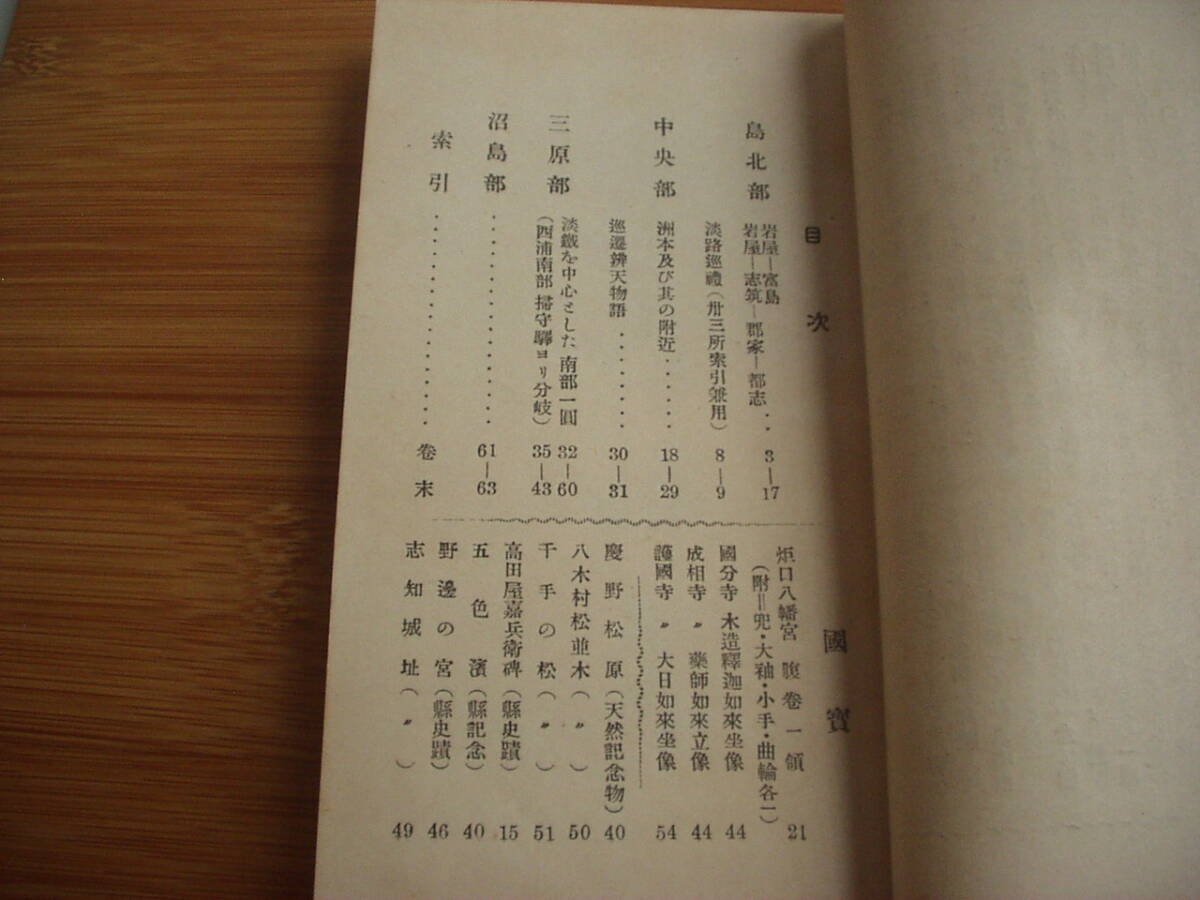 目次
島北部
岩屋―富島
岩屋―志筑―郡家―都志‥ 3―17
淡路巡禮（卅三所索引兼用） 8―9
中央部 洲本及び其の附近‥‥‥ 18―29
巡遷辨天物語‥‥‥‥ 30―31
三原部 淡鐵を中心とした南部一圓 32―60
（西浦南部 掃守驛ヨリ分岐） 35―43
沼島部‥‥‥‥‥‥‥‥ 61―63
索引‥‥‥‥‥‥‥‥ 卷末
國寶
炬口八幡宮 腹卷一領 21
（附＝兜・大袖・小手・曲輪各一）
國分寺 木造釋迦如來坐像 44
成相寺 〃 藥師如來立像 44
護國寺 〃 大日如來坐像 54
慶野松原（天然記念物） 40
八木村松並木（〃） 50
千手の松（〃） 51
高田屋嘉兵衛碑（縣史蹟） 15
五色濱（縣記念） 40
野邊の宮（縣史蹟） 46
志知城址（〃） 49